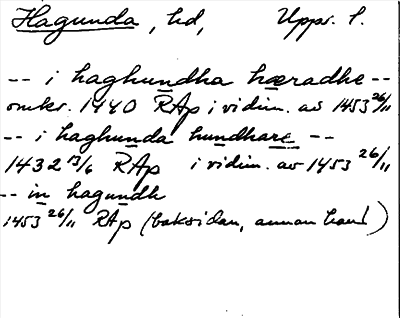 Hagunda, hd, Upps. l.
-- i haghundha hæradhe --
omkr. 1440 RAp i vidim. av 1453 26/11
-- i haghunda hundhare --
1432 13/6 RAp i vidim. av 1453 26/11
-- in hagundh
1453 26/11 RAp (baksidan, annan hand)